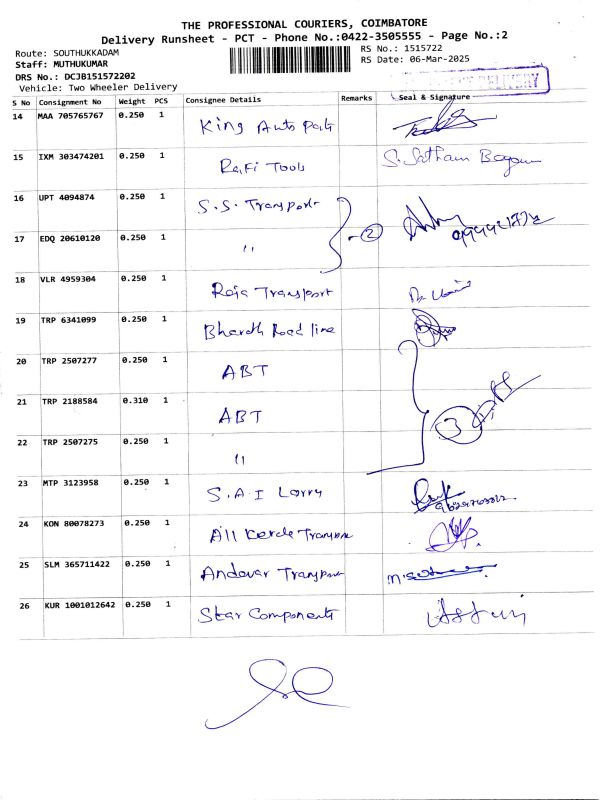 THE PROFESSIONAL COURIERS, COIMBATORE
Delivery Runsheet - PCT - Phone No.:0422-3505555 - Page No.:2
Route: SOUTHUKKADAM
RS No.: 1515722
Staff: MUTHUKUMAR
RS Date: 06-Mar-2025
DRS No.: DCJB151572202
DELIVERY
Vehicle: Two Wheeler Delivery
S No Consignment No Weight PCS Consignee Details Remarks Seal & Signature
14 MAA 705765767 0.250 1 King Auto Parts
15 IXM 303474201 0.250 1 Rafi Tools S. Satham Begam
16 UPT 4094874 0.250 1 S.S. Transport
17 EDQ 20610120 0.250 1 " 2
18 VLR 4959304 0.250 1 Raja Transport
19 TRP 6341099 0.250 1 Bharath Road line
20 TRP 2507277 0.250 1 ABT
21 TRP 2188584 0.310 1 ABT 3
22 TRP 2507275 0.250 1 "
23 MTP 3123958 0.250 1 S.A.I Lorry
24 KON 80078273 0.250 1 All Kerala Transport
25 SLM 365711422 0.250 1 Andavar Transport
26 KUR 1001012642 0.250 1 Star Components